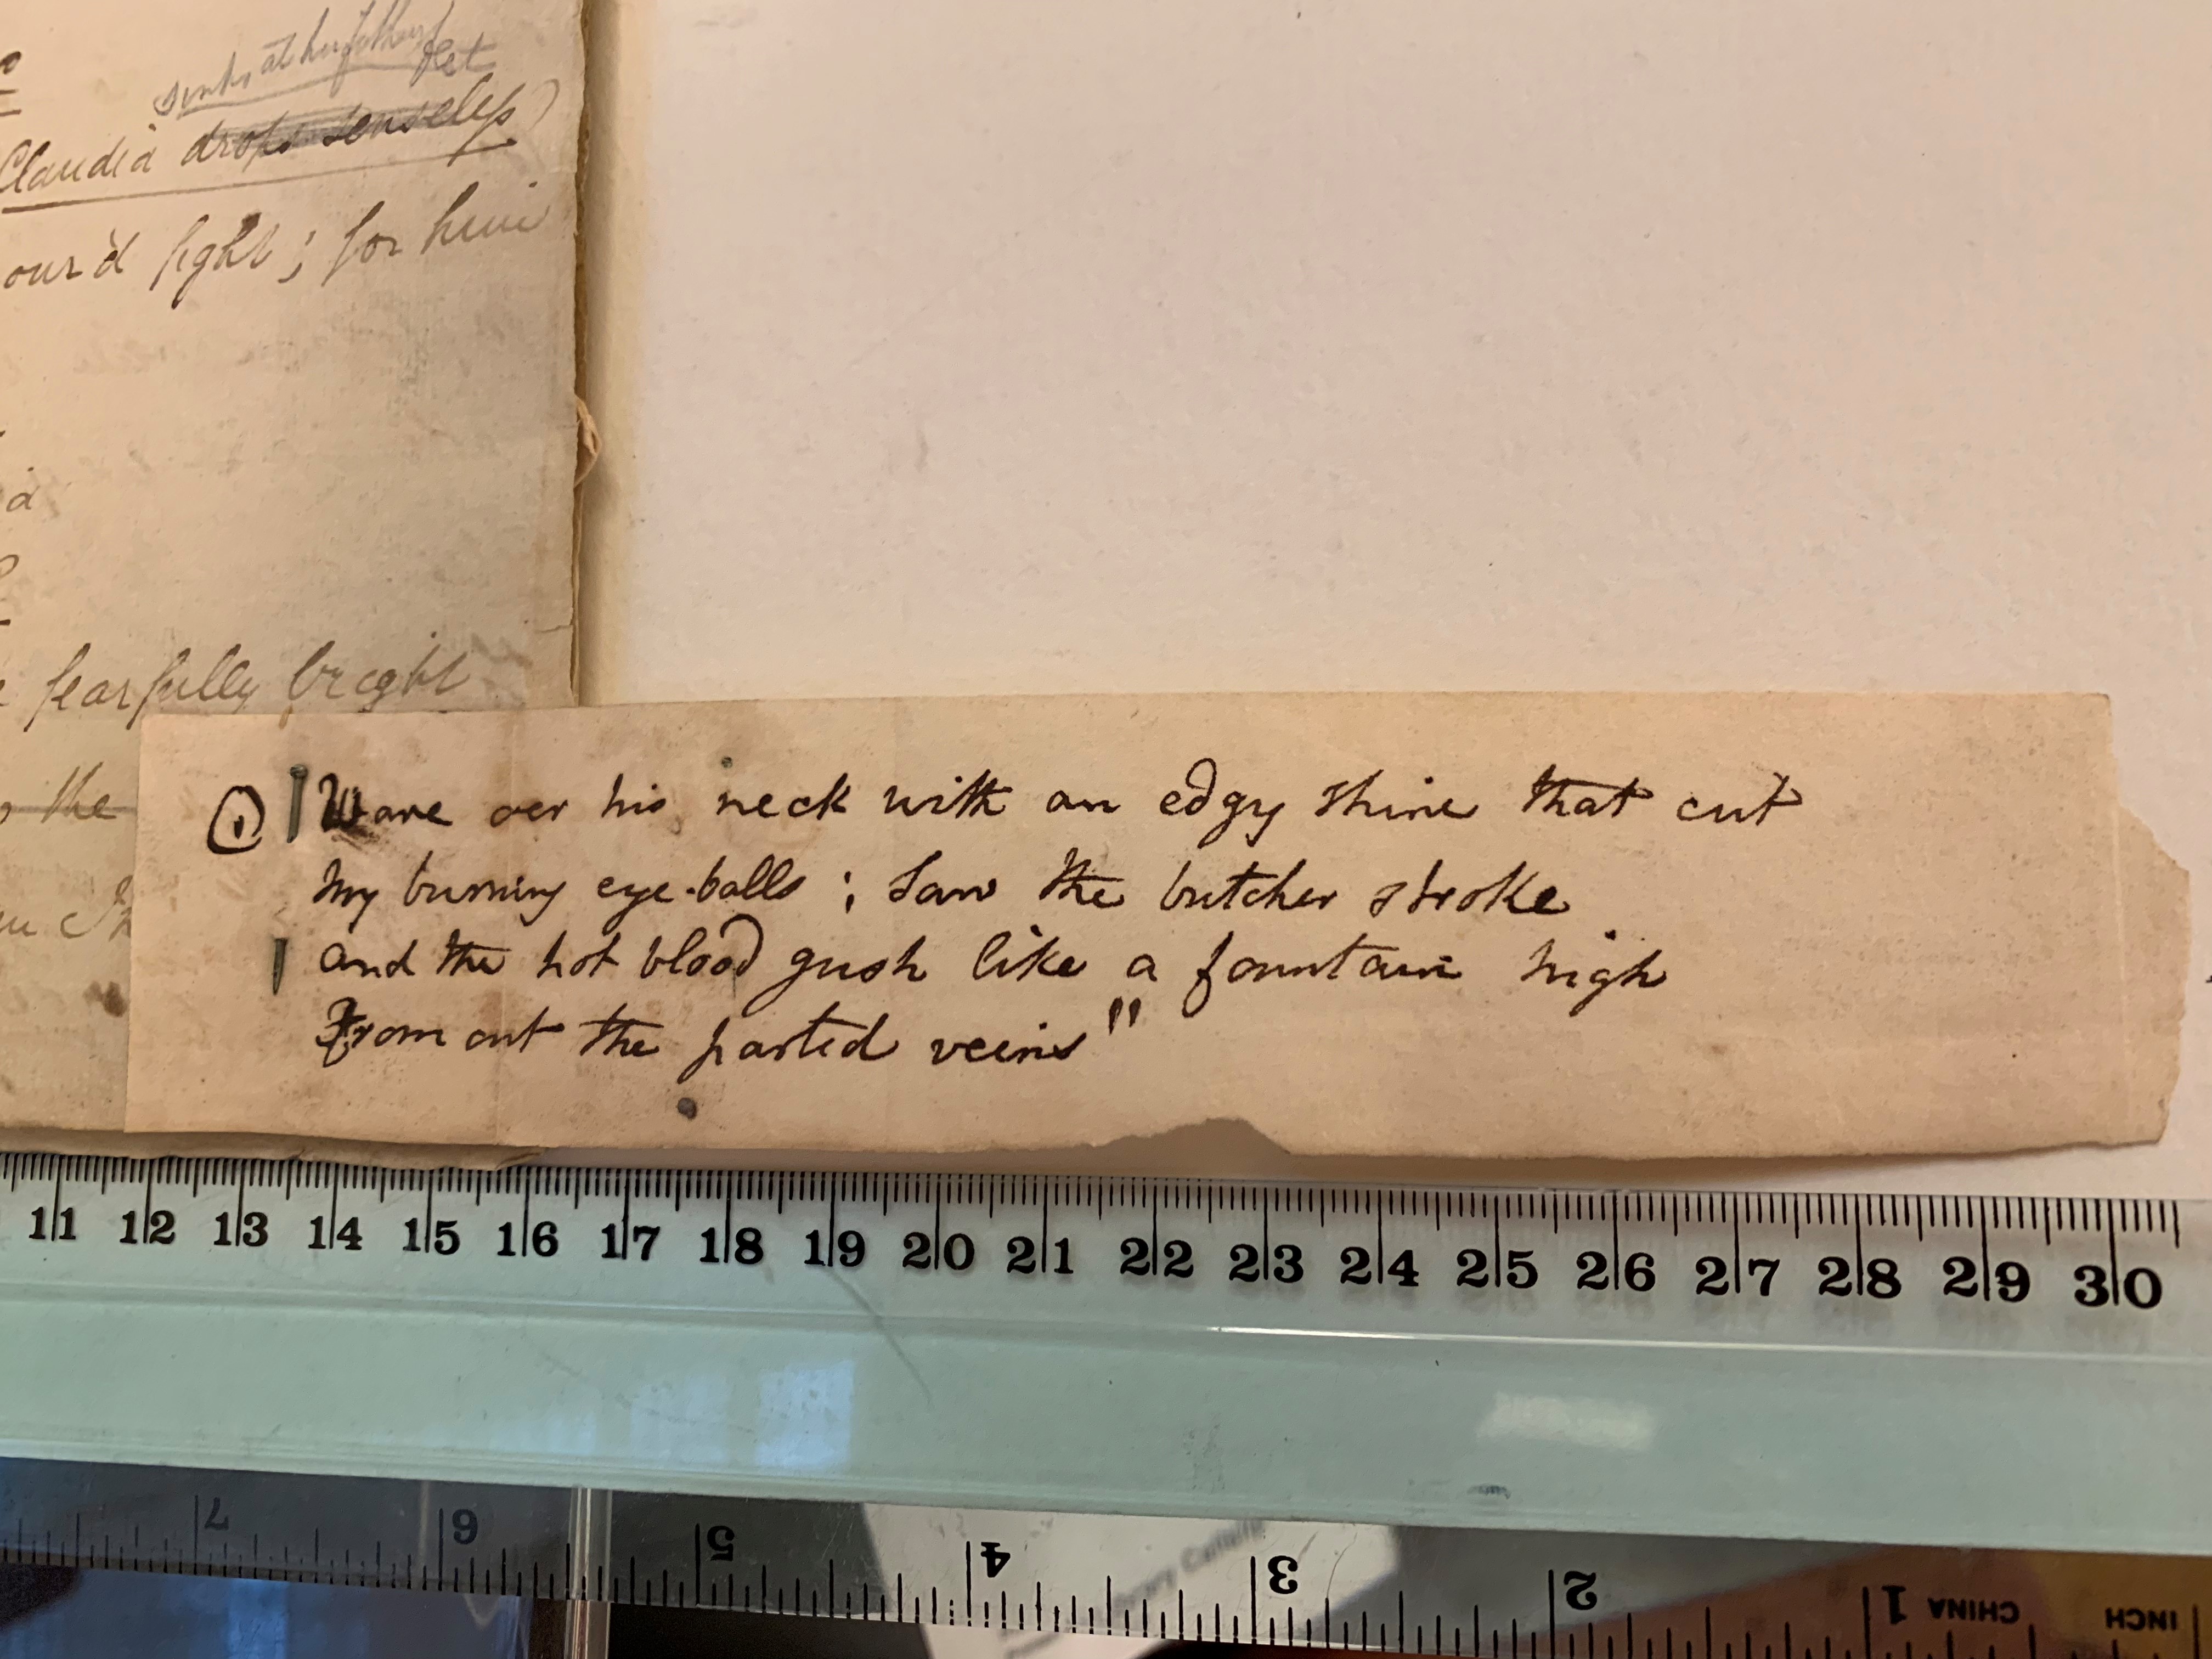 sinks at her father's feet
Claudia drops senseless)
our'd fight; for him
a
fearfully bright
the
① Wave oer his neck with an edgy shine that cut
my burning eye-balls; saw the butcher stroke
and the hot blood gush like a fountain high
From out the parted veins"
11 12 13 14 15 16 17 18 19 20 21 22 23 24 25 26 27 28 29 30
7 6 5 4 3 2 1 CHINA INCH